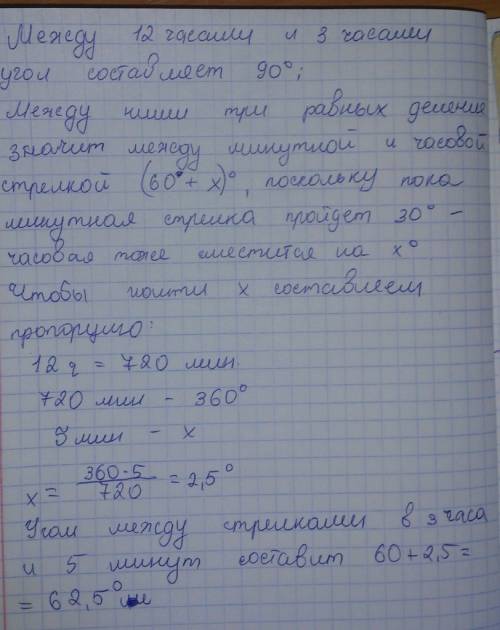 Между 12 часами и 3 часами
угол составляет 90°;
Между ними три равных деление
значит между минутной и часовой
стрелкой (60° + x)°, поскольку пока
минутная стрелка пройдет 30° –
часовая тоже сместится на x°
Чтобы найти x составляем
пропорцию:
12 ч = 720 мин
720 мин – 360°
5 мин – x
x = 360·5 / 720 = 2,5°
Угол между стрелками в 3 часа
и 5 минут составит 60 + 2,5 =
= 62,5°